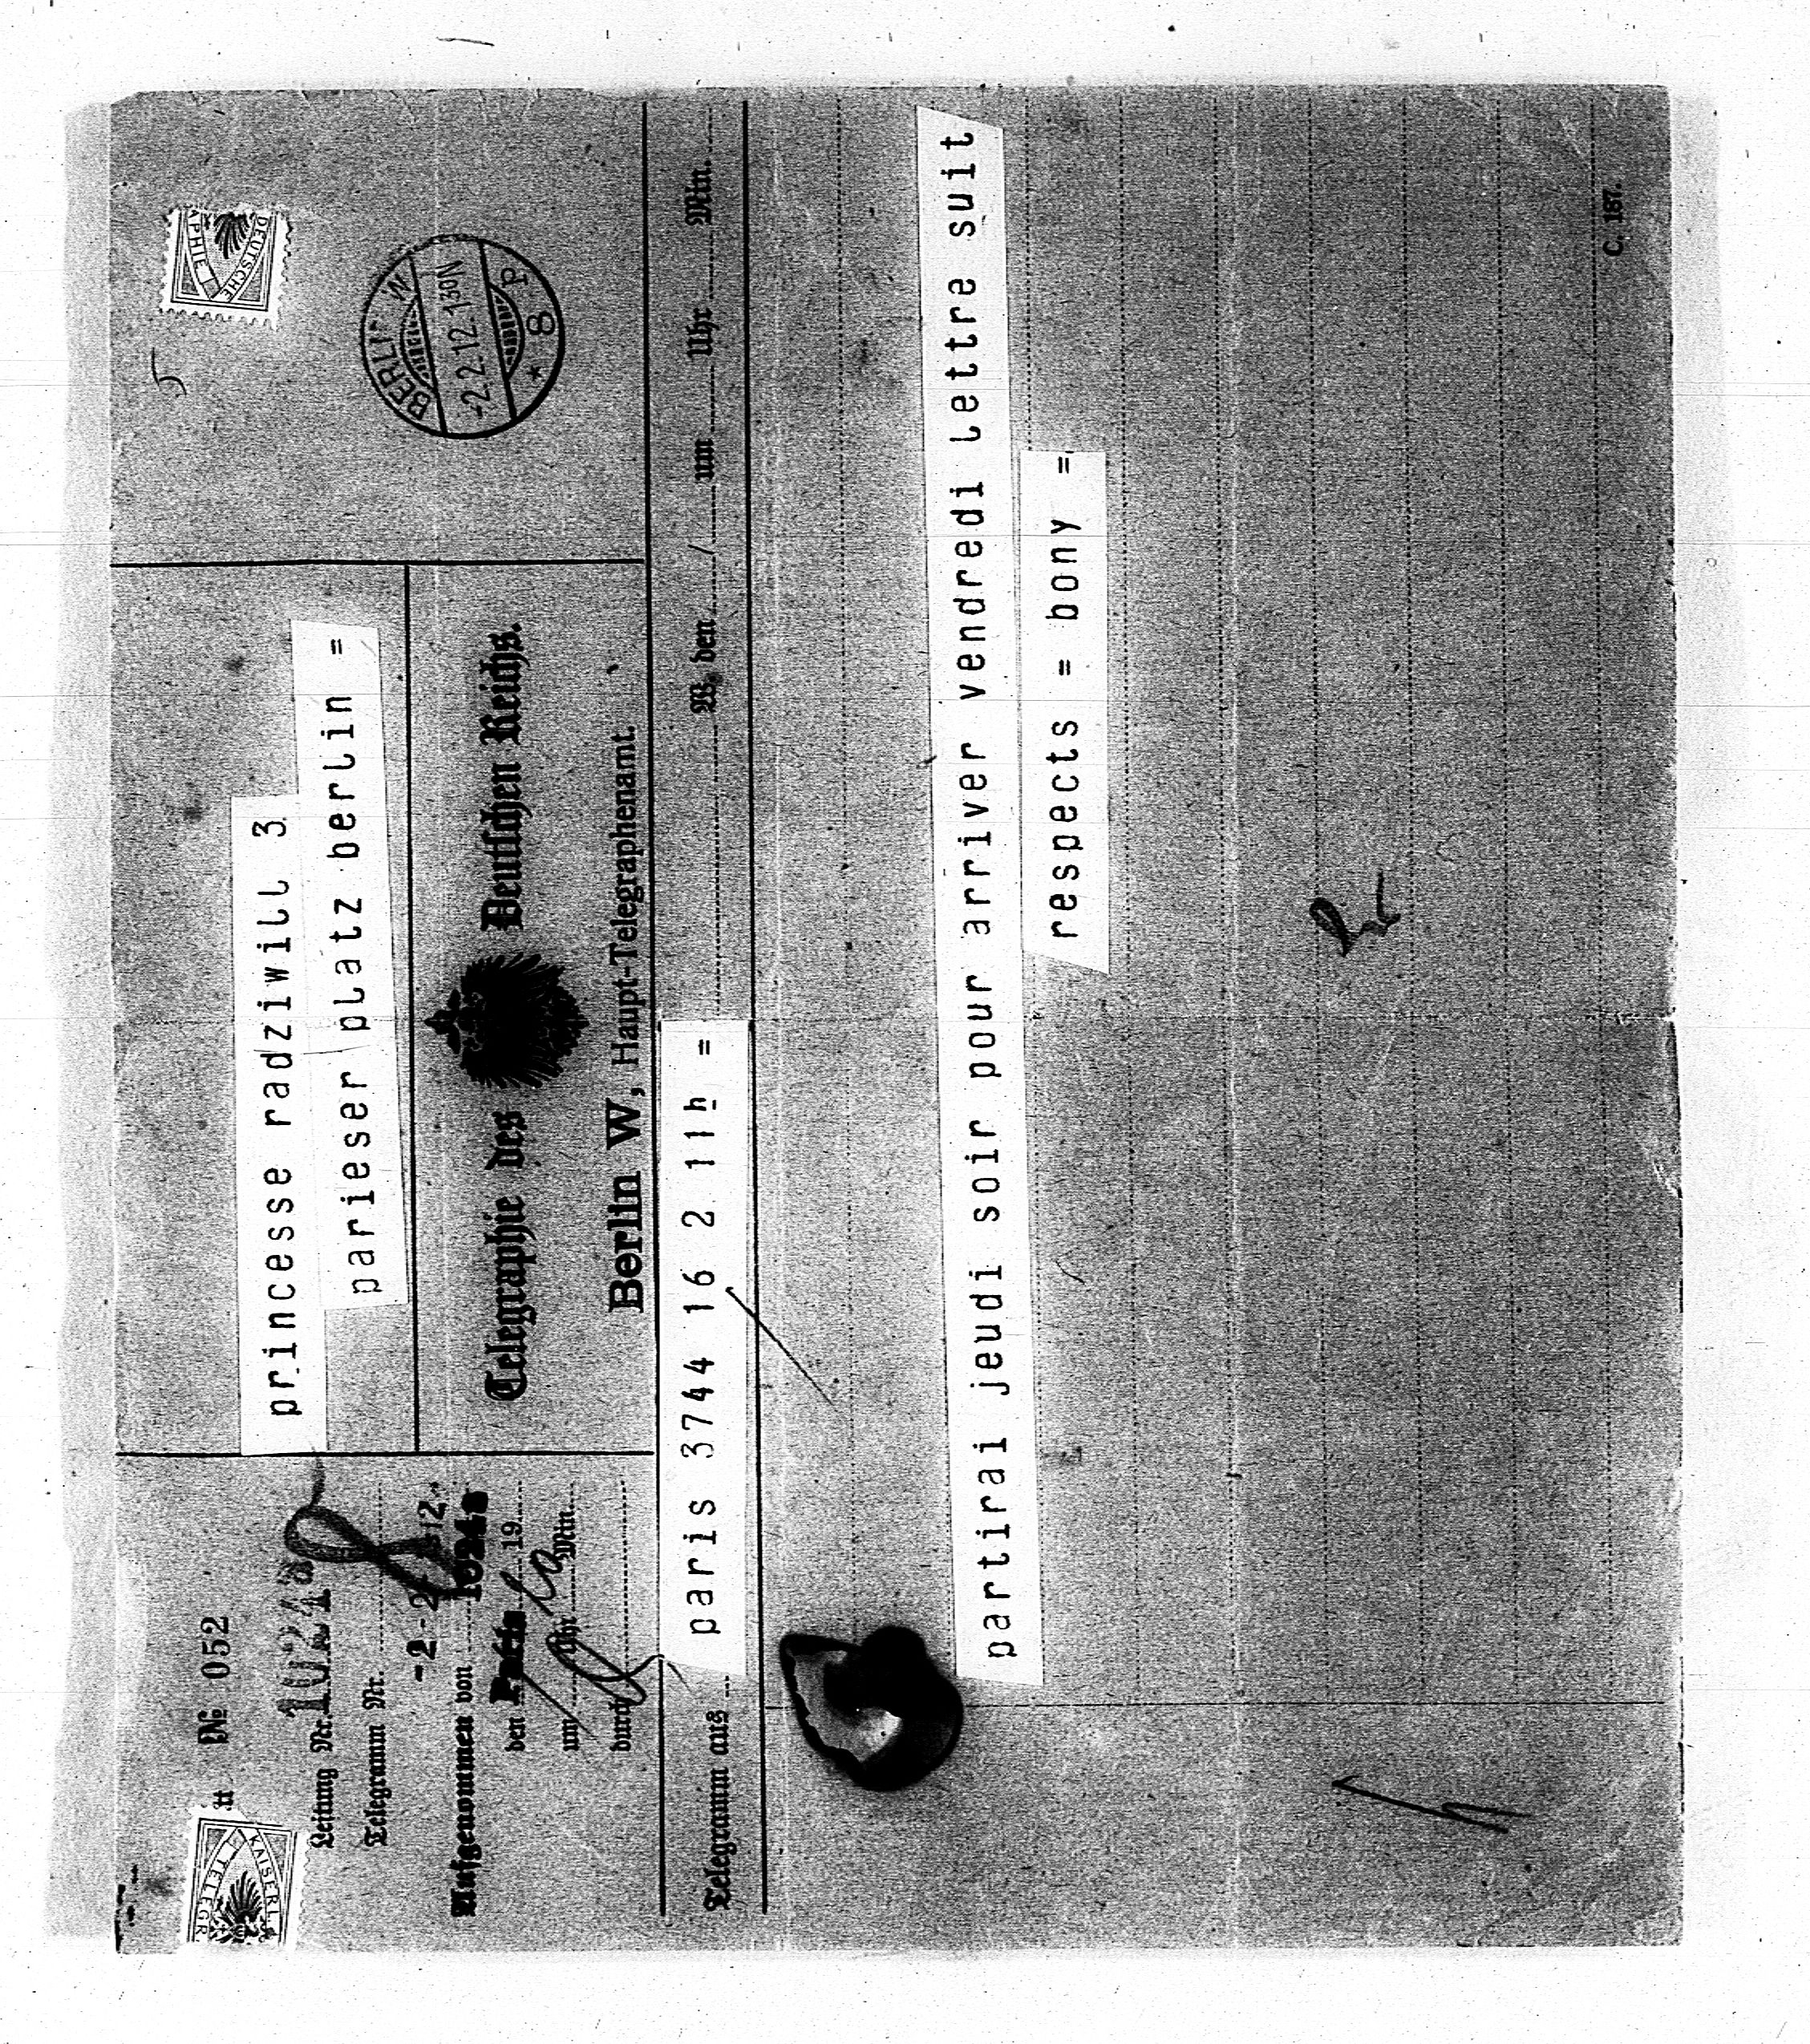 № 052
Leitung Nr. 1024a
Telegramm Nr.
-2.-2. 12.
Aufgenommen von 1024a
den Paris 19
um Uhr Mtn.
durch
princesse radziwill 3
parieser platz berlin =
Telegraphie des Deutschen Reichs.
Berlin W, Haupt-Telegraphenamt.
DEUTSCHE
KAISERL.
TELEGR.
APHIE
BERLIN W
-2.2.12.130N
* 8 P
Telegramm aus paris 3744 16 2 11h = W, den / um Uhr Mtn.
partirai jeudi soir pour arriver vendredi lettre suit
respects = bony =
C. 187.